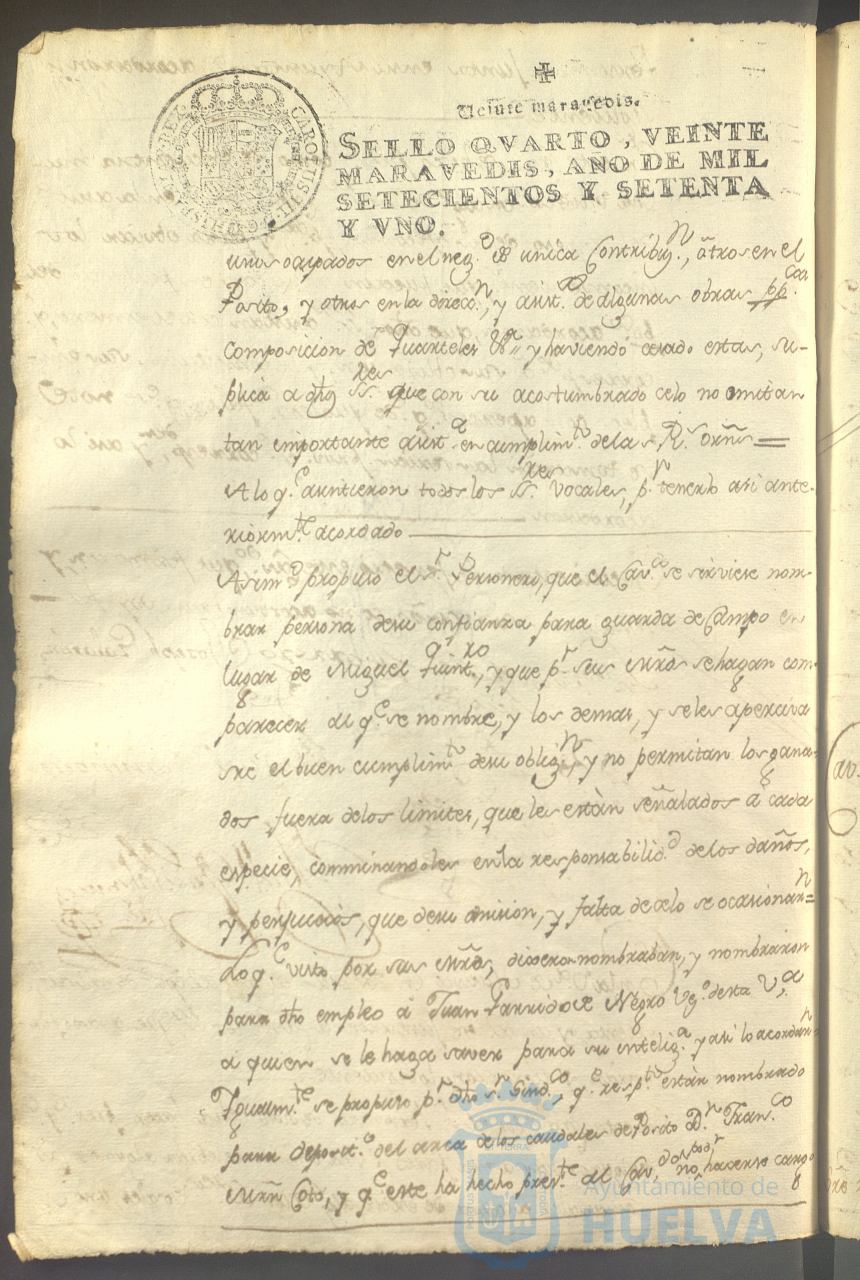 Veinte maravedis.
CAROLUS III D G HISPANIAR REX
SELLO QVARTO, VEINTE
MARAVEDIS, AÑO DE MIL
SETECIENTOS Y SETENTA
Y VNO.
unos ocupados en el neg.o de unica Contribuz.n, otros en el
Posito, y otros en la direcc.n, y asist.a de algunas obras pp.cas
composicion de Quarteles &.a y haviendo cesado estas, su-
plica a dhos SS.res que con su acostumbrado celo no omitan
tan importante asist.a en cumplim.to de las R.s orñs
A lo q.e asintieron todos los SS.res Vocales, p.r tenerlo asi ante-
riorm.te acordado
Asim.o propuso el S.r Personero, que el Cav.do se sirviese nom-
brar persona de su confianza para guarda de Campo en
lugar de Miguel Quint.ro, y que p.r sus Mrds se hagan com-
parecer al q.e se nombre, y los demas, y se les aperciva
sre el buen cumplim.to de su oblig.n, y no permitan los gana-
dos fuera de los limites, que les estàn señalados à cada
especie, comminandoles en la responsabilid.d de los daños,
y perjuicios, que de su omision, y falta de celo se ocasionar.n=
Lo q.e visto por sus Mrds, dixeron nombraban, y nombraron
para dho empleo à Juan Garrido Negro Vez.o desta V.a
a quien se le haga saver para su intelig.a y asi lo acordar.n=
Igualm.te se propuso p.r dho S.r Sind.co, q.e resp.to estàr nombrado
para deposit.o del arca de los caudales de Posito D.n Fran.co
Mrñ Coto, y q.e este ha hecho pres.te al Cav.do no hacerse cargo
Ayuntamiento de
HUELVA